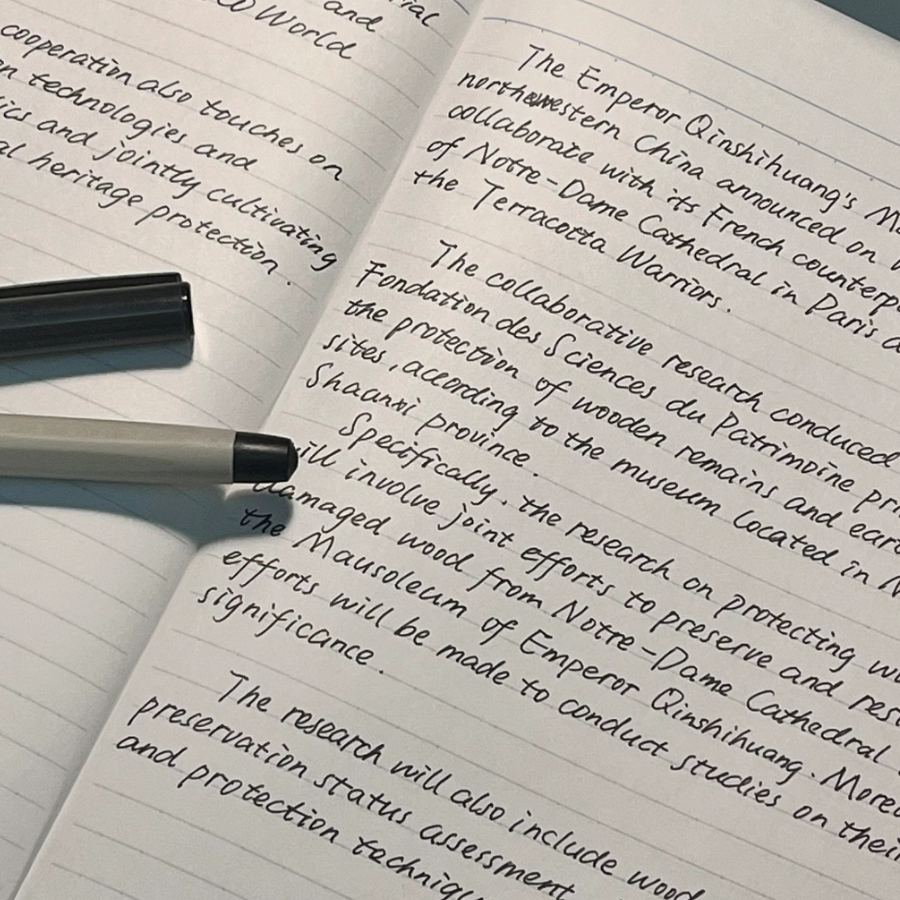 and
World
cooperation also touches on
technologies and
and jointly cultivating
heritage protection.
The Emperor Qinshihuang's
northwestern China announced on
collaborate with its French
of Notre-Dame Cathedral in Paris
the Terracotta Warriors.
The collaborative research conducted
Fondation des Sciences du Patrimoine
the protection of wooden remains and
sites, according to the museum located in
Shaanxi province.
Specifically, the research on protecting
involve joint efforts to preserve and
damaged wood from Notre-Dame Cathedral
the Mausoleum of Emperor Qinshihuang.
efforts will be made to conduct studies on
significance.
The research will also include
preservation status assessment
and protection